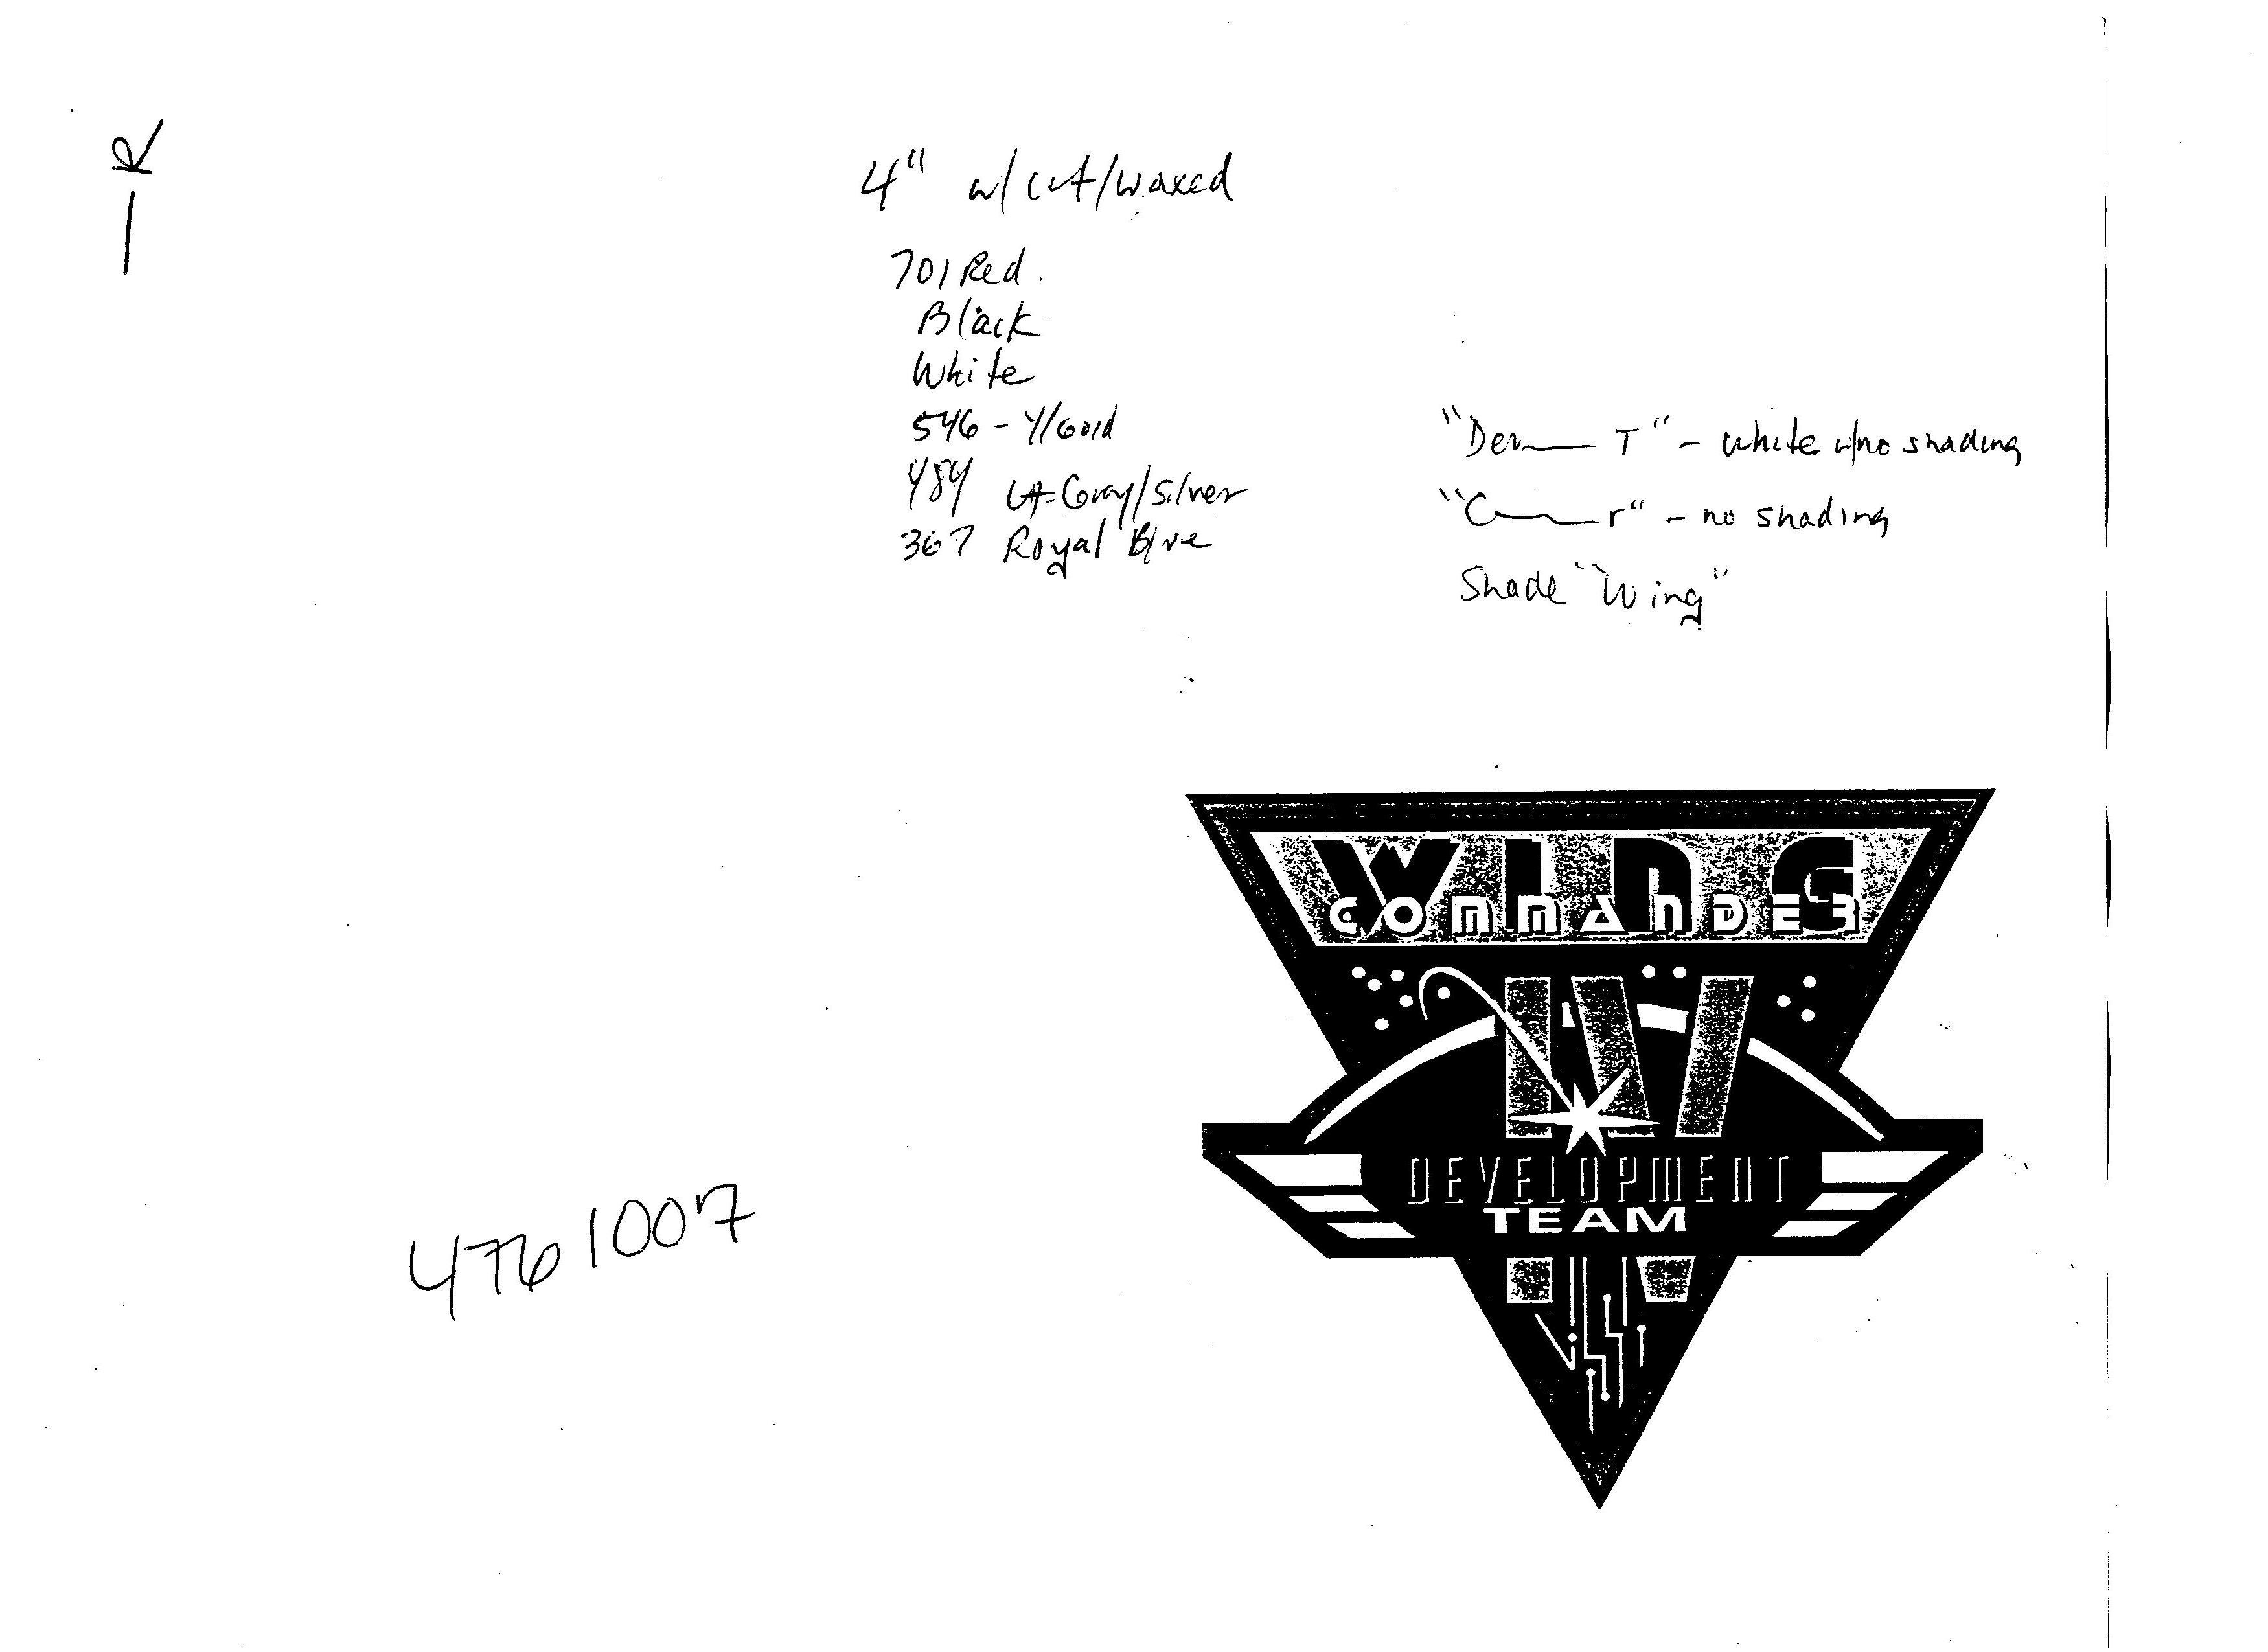 R
4" w/cut/waxed
701 Red.
Black
White
546 - Y/Gold
484 Lt. Gray/Silver
367 Royal Blue
"Dev—— T" - white w/no shading
"C——r" - no shading
Shade "Wing"
WING
COMMANDER
IV
DEVELOPMENT
TEAM
4761007